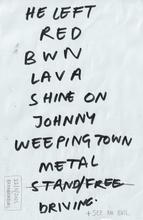 HE LEFT
RED
BWN
LAVA
SHINE ON
JOHNNY
WEEPING TOWN
METAL
STAND/FREE
DRIVING.
+ SEE NO EVIL